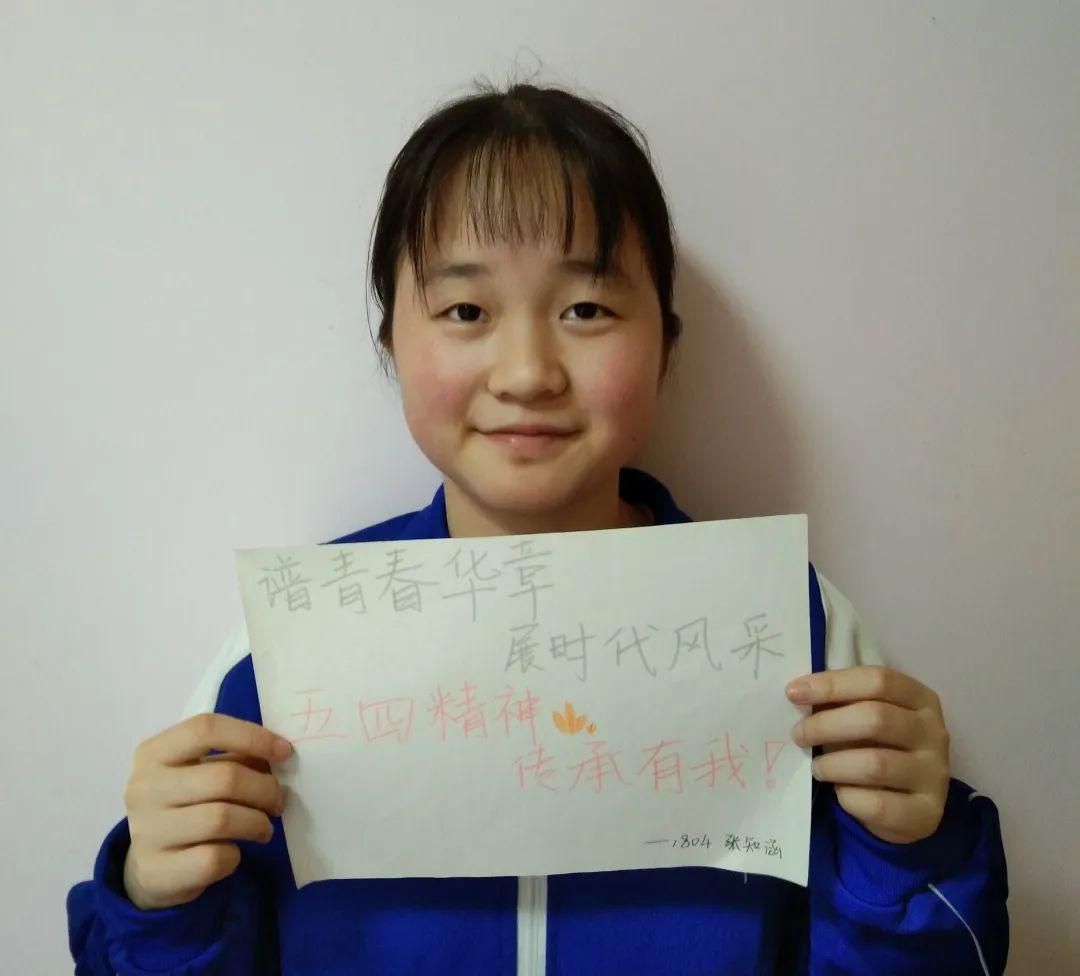 谱青春华章
展时代风采
五四精神
传承有我!
—1804 张知涵